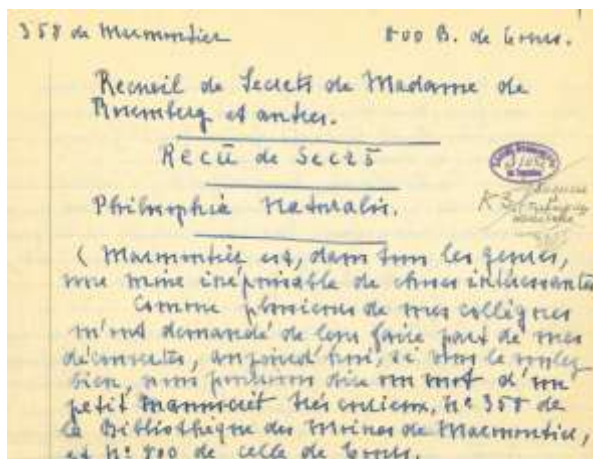 358 de Marmoutier 800 B. de Tours.
Recueil de Secrets de Madame de
Rosemberg et autres.
Recü de Secrō
Philosophia Naturalis.
( Marmoutier est, dans tous les genres,
une mine inépuisable de choses intéressantes
Comme plusieurs de mes collègues
m'ont demandé de leur faire part de mes
découvertes, aujourd'hui, si vous le voulez
bien, nous pourrons dire un mot d'un
petit manuscrit très curieux, n° 358 de
la Bibliothèque des Moines de Marmoutier,
et n° 800 de celle de Tours.